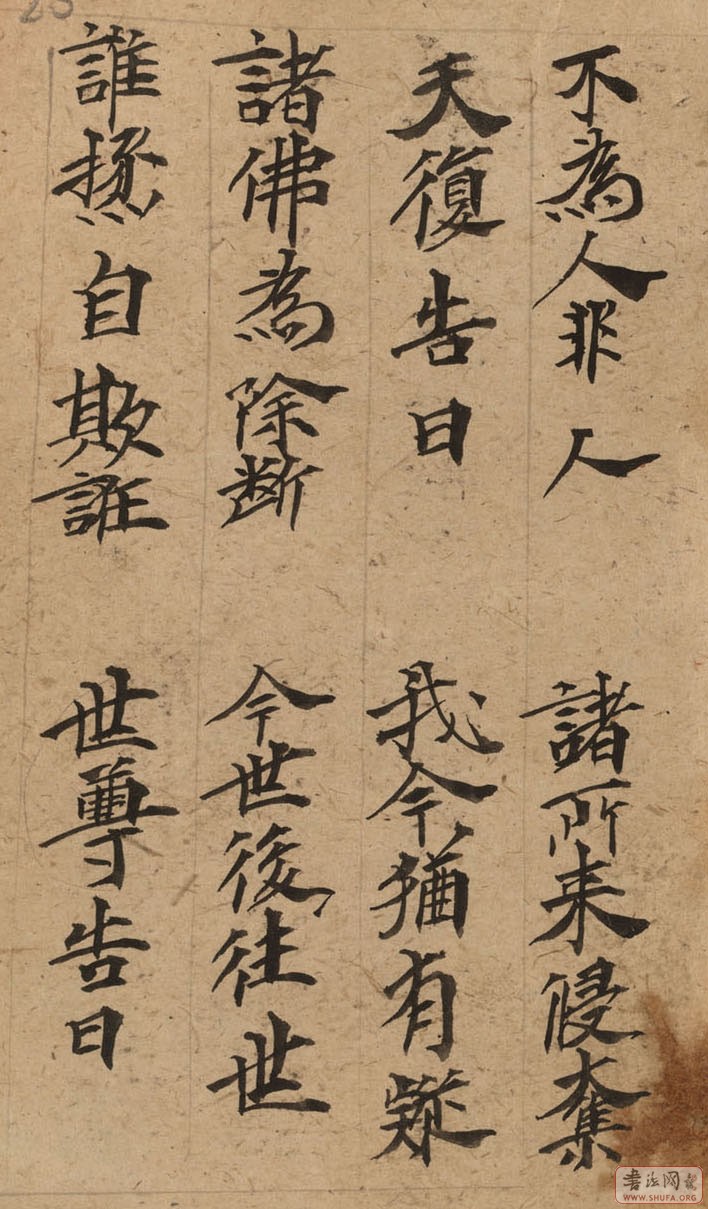 不為人非人 諸所来侵奪
天復告曰 我今猶有疑
諸佛為除斷 今世後往世
誰極自欺誑 世尊告曰
WWW.SHUFA.ORG